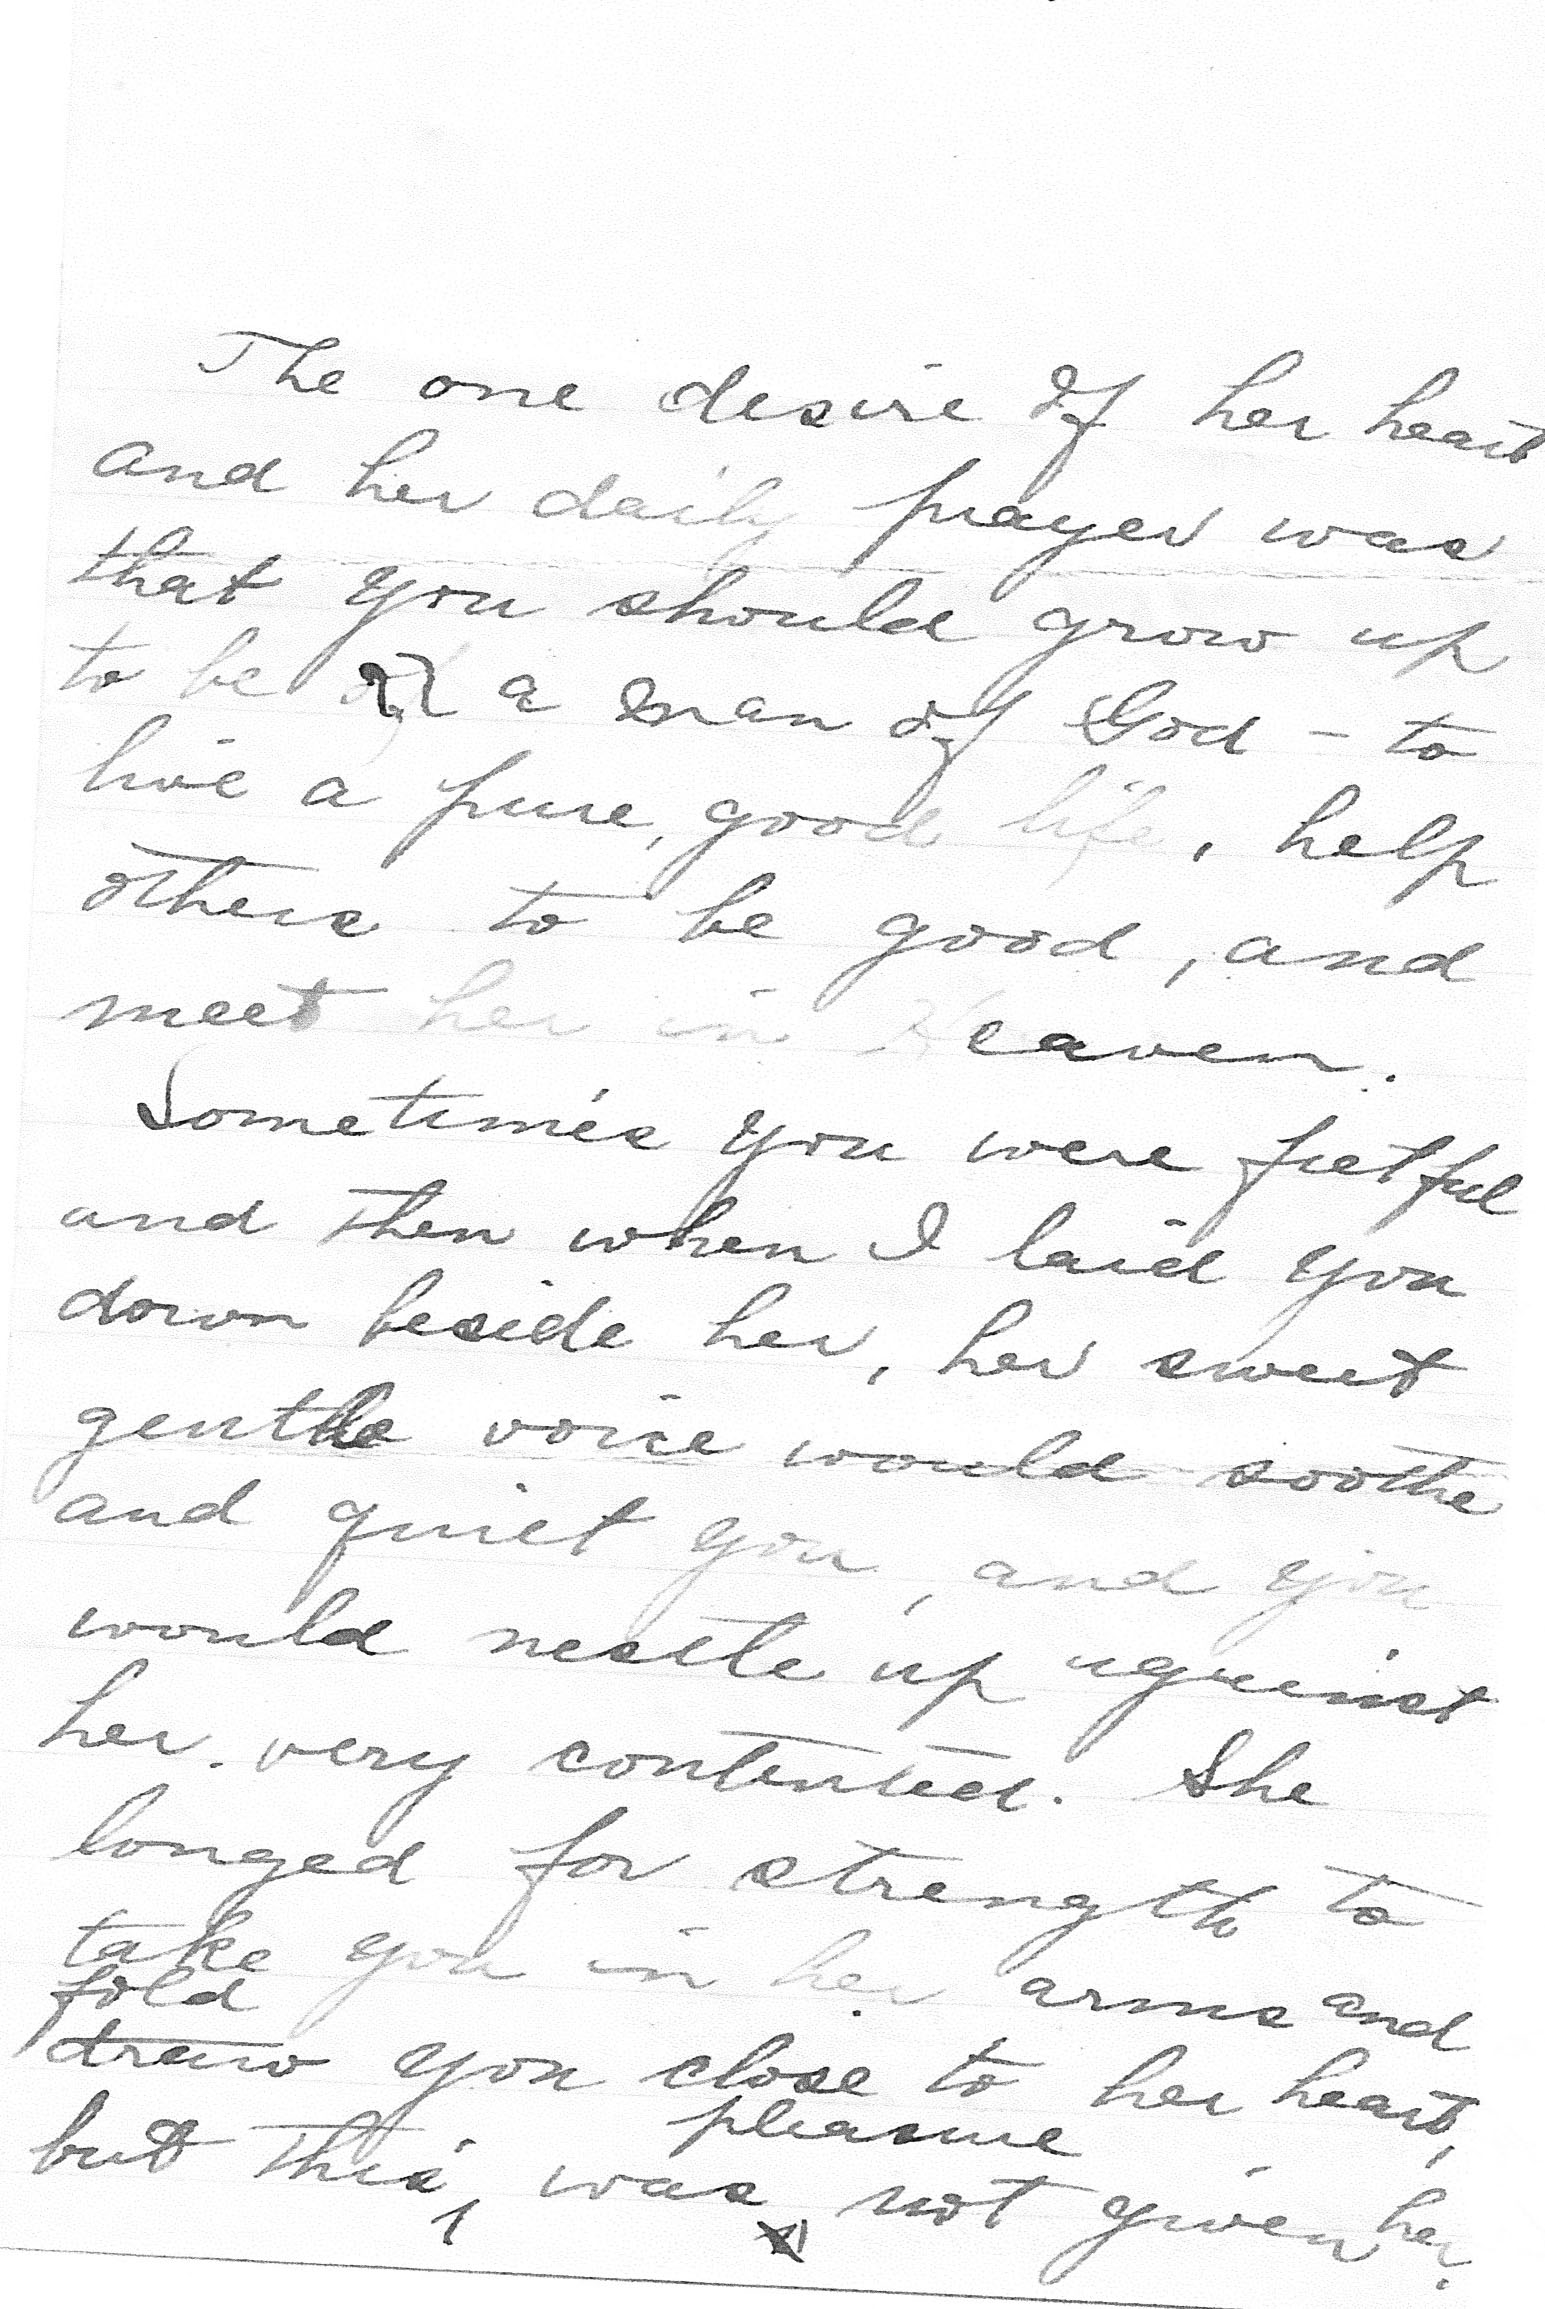 The one desire of her heart
and her daily prayer was
that you should grow up
to be a man of God - to
live a pure, good life, help
others to be good, and
meet her in Heaven.
Sometimes you were fretful
and then when I laid you
down beside her, her sweet
gentle voice would soothe
and quiet you, and you
would nestle up against
her very contented. She
longed for strength to
take you in her arms and
fold
draw you close to her heart,
pleasure
but this was not given her.